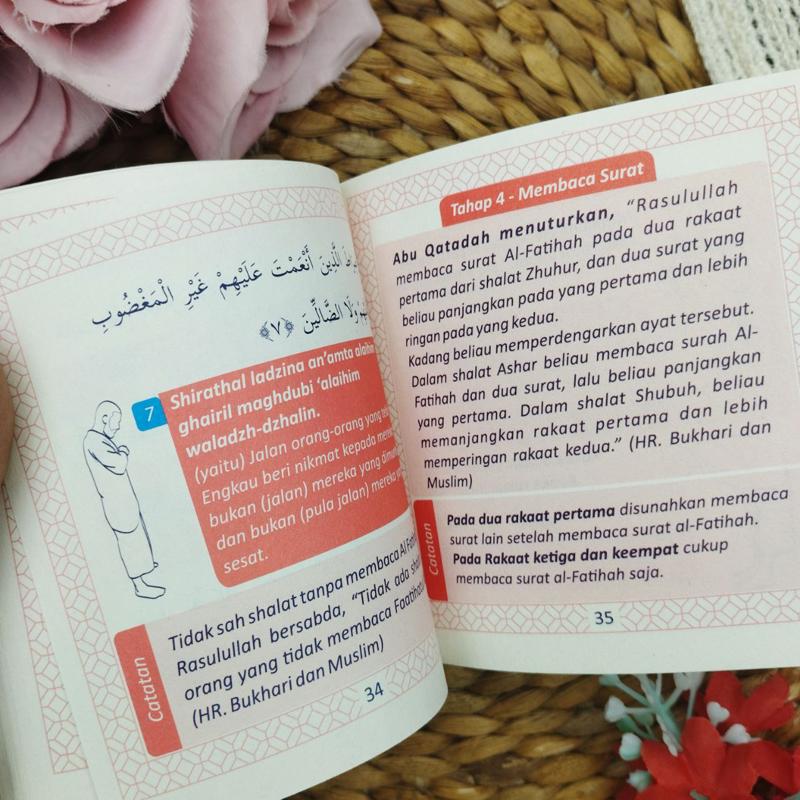 الَّذِينَ أَنْعَمْتَ عَلَيْهِمْ غَيْرِ الْمَغْضُوبِ
وَلَا الضَّالِّينَ ﴿٧﴾
7
Shirathal ladzina an'amta alaihim
ghairil maghdubi 'alaihim
waladzh-dzhalin.
(yaitu) Jalan orang-orang yang
Engkau beri nikmat kepada
bukan (jalan) mereka yang
dan bukan (pula jalan) mereka
sesat.
Catatan
Tidak sah shalat tanpa membaca Al
Rasulullah bersabda, "Tidak ada
orang yang tidak membaca
(HR. Bukhari dan Muslim)
34
Tahap 4 - Membaca Surat
Abu Qatadah menuturkan, "Rasulullah
membaca surat Al-Fatihah pada dua rakaat
pertama dari shalat Zhuhur, dan dua surat yang
beliau panjangkan pada yang pertama dan lebih
ringan pada yang kedua.
Kadang beliau memperdengarkan ayat tersebut.
Dalam shalat Ashar beliau membaca surah Al-
Fatihah dan dua surat, lalu beliau panjangkan
yang pertama. Dalam shalat Shubuh, beliau
memanjangkan rakaat pertama dan lebih
memperingan rakaat kedua." (HR. Bukhari dan
Muslim)
Catatan
Pada dua rakaat pertama disunahkan membaca
surat lain setelah membaca surat al-Fatihah.
Pada Rakaat ketiga dan keempat cukup
membaca surat al-Fatihah saja.
35